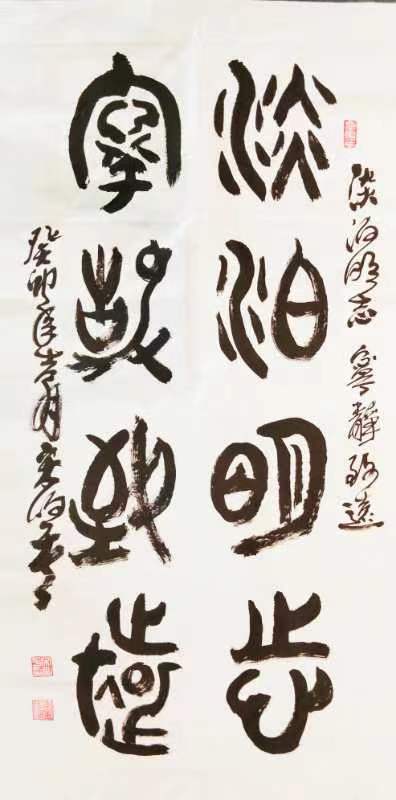 淡泊明志 寧靜致遠
淡泊明志
寧靜致遠
癸卯年月